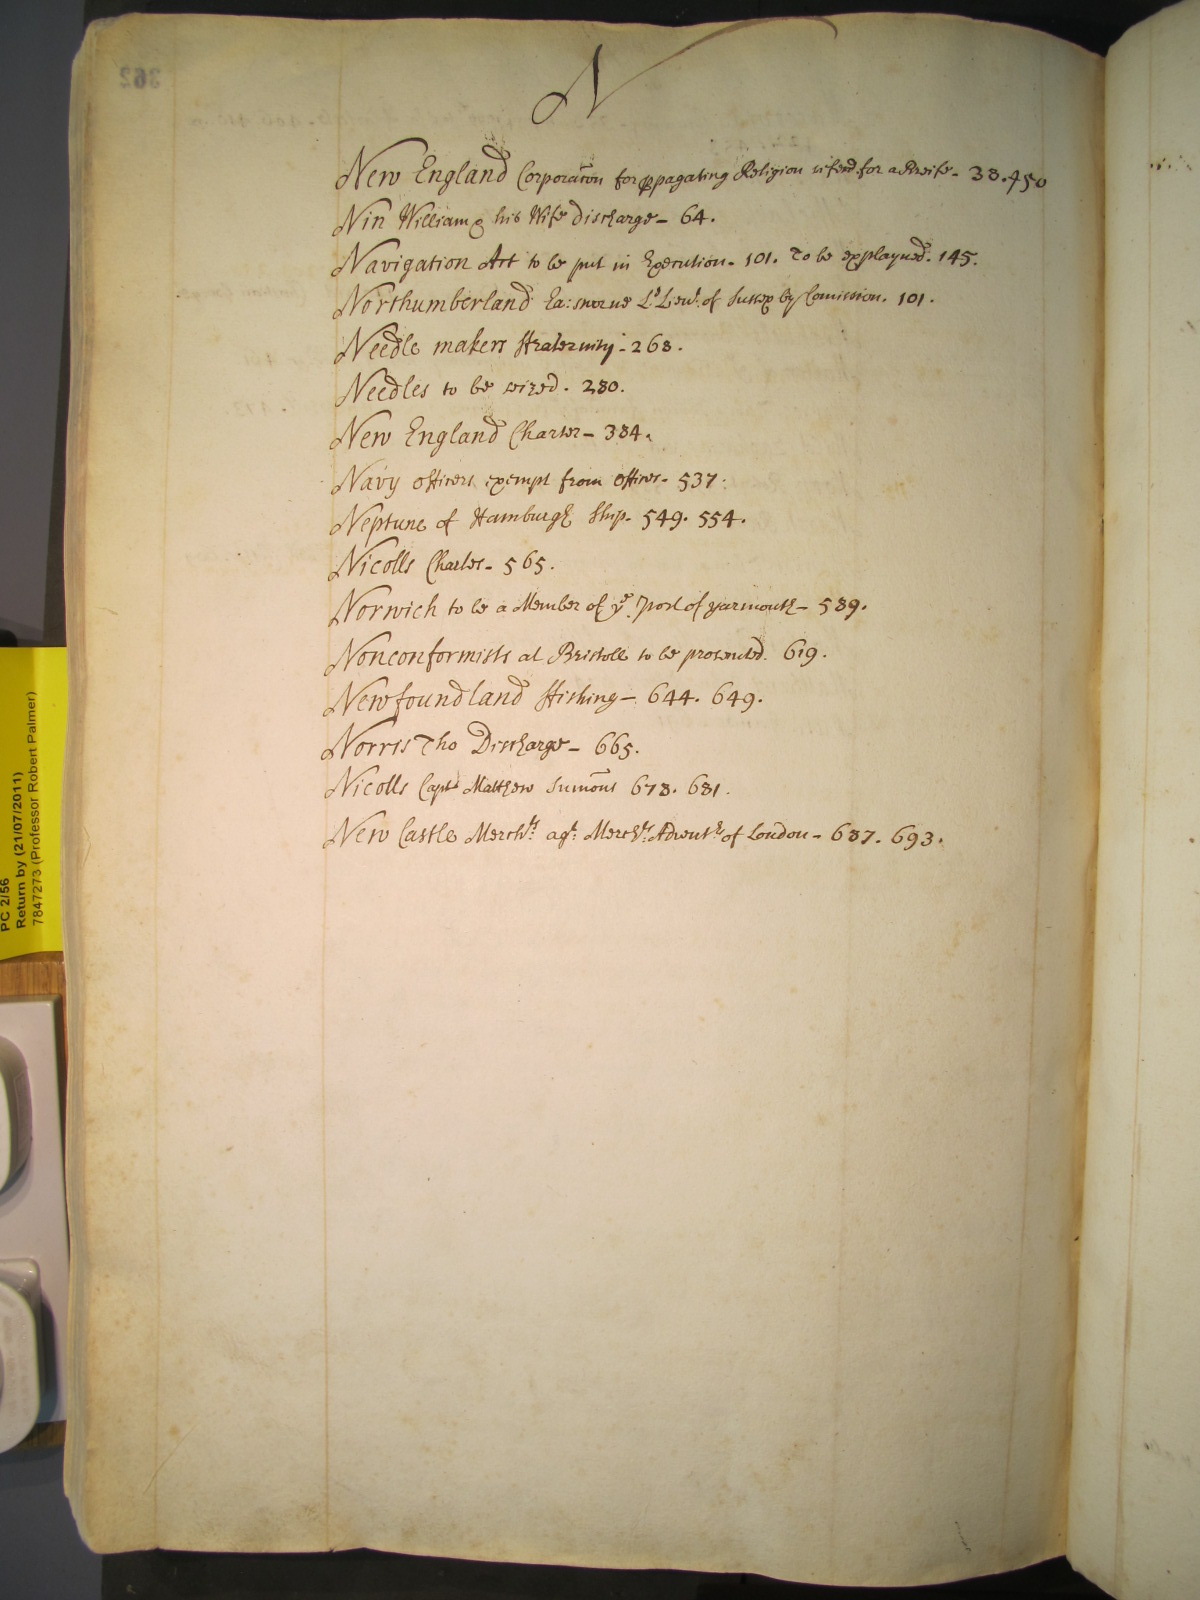 N
New England Corporac̄on for ꝓpagating Religion referd for a Breife - 38. 450
Nin William & his Wife discharge - 64.
Navigation Act to be put in Execution - 101. To be explayned. 145.
Northumberland Ea: sworne Ld. Lewt. of Sussex by Com̄ission. 101.
Needle makers ffraternity - 268.
Needles to be seized. 280.
New England Charter - 384.
Navy officers exempt from offices - 537.
Neptune of Hamburgh Ship - 549. 554.
Nicolls Charles - 565.
Norwich to be a Member of ye. Port of yarmouth - 589.
Nonconformists at Bristoll to be prosecuted. 619.
Newfoundland ffishing - 644. 649.
Norris Tho Discharge - 665.
Nicolls Capt Matthew Sum̄ons 678. 681.
New Castle Merchts. agt. Merchts. Adventrs of London - 687. 693.
362
PC 2/56
Return by (21/07/2011)
7847273 (Professor Robert Palmer)